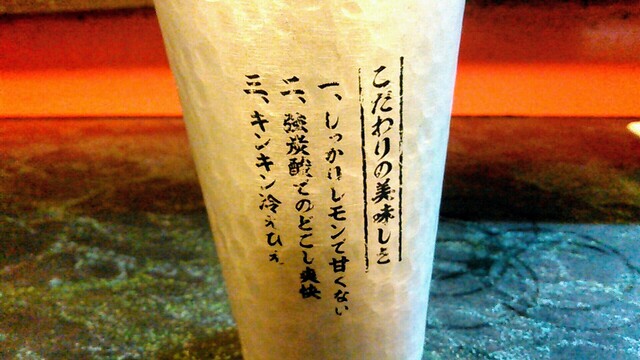 こだわりの美味しさ
一、しっかりレモンで甘くない
二、強炭酸でのどごし爽快
三、キンキン冷えひえ